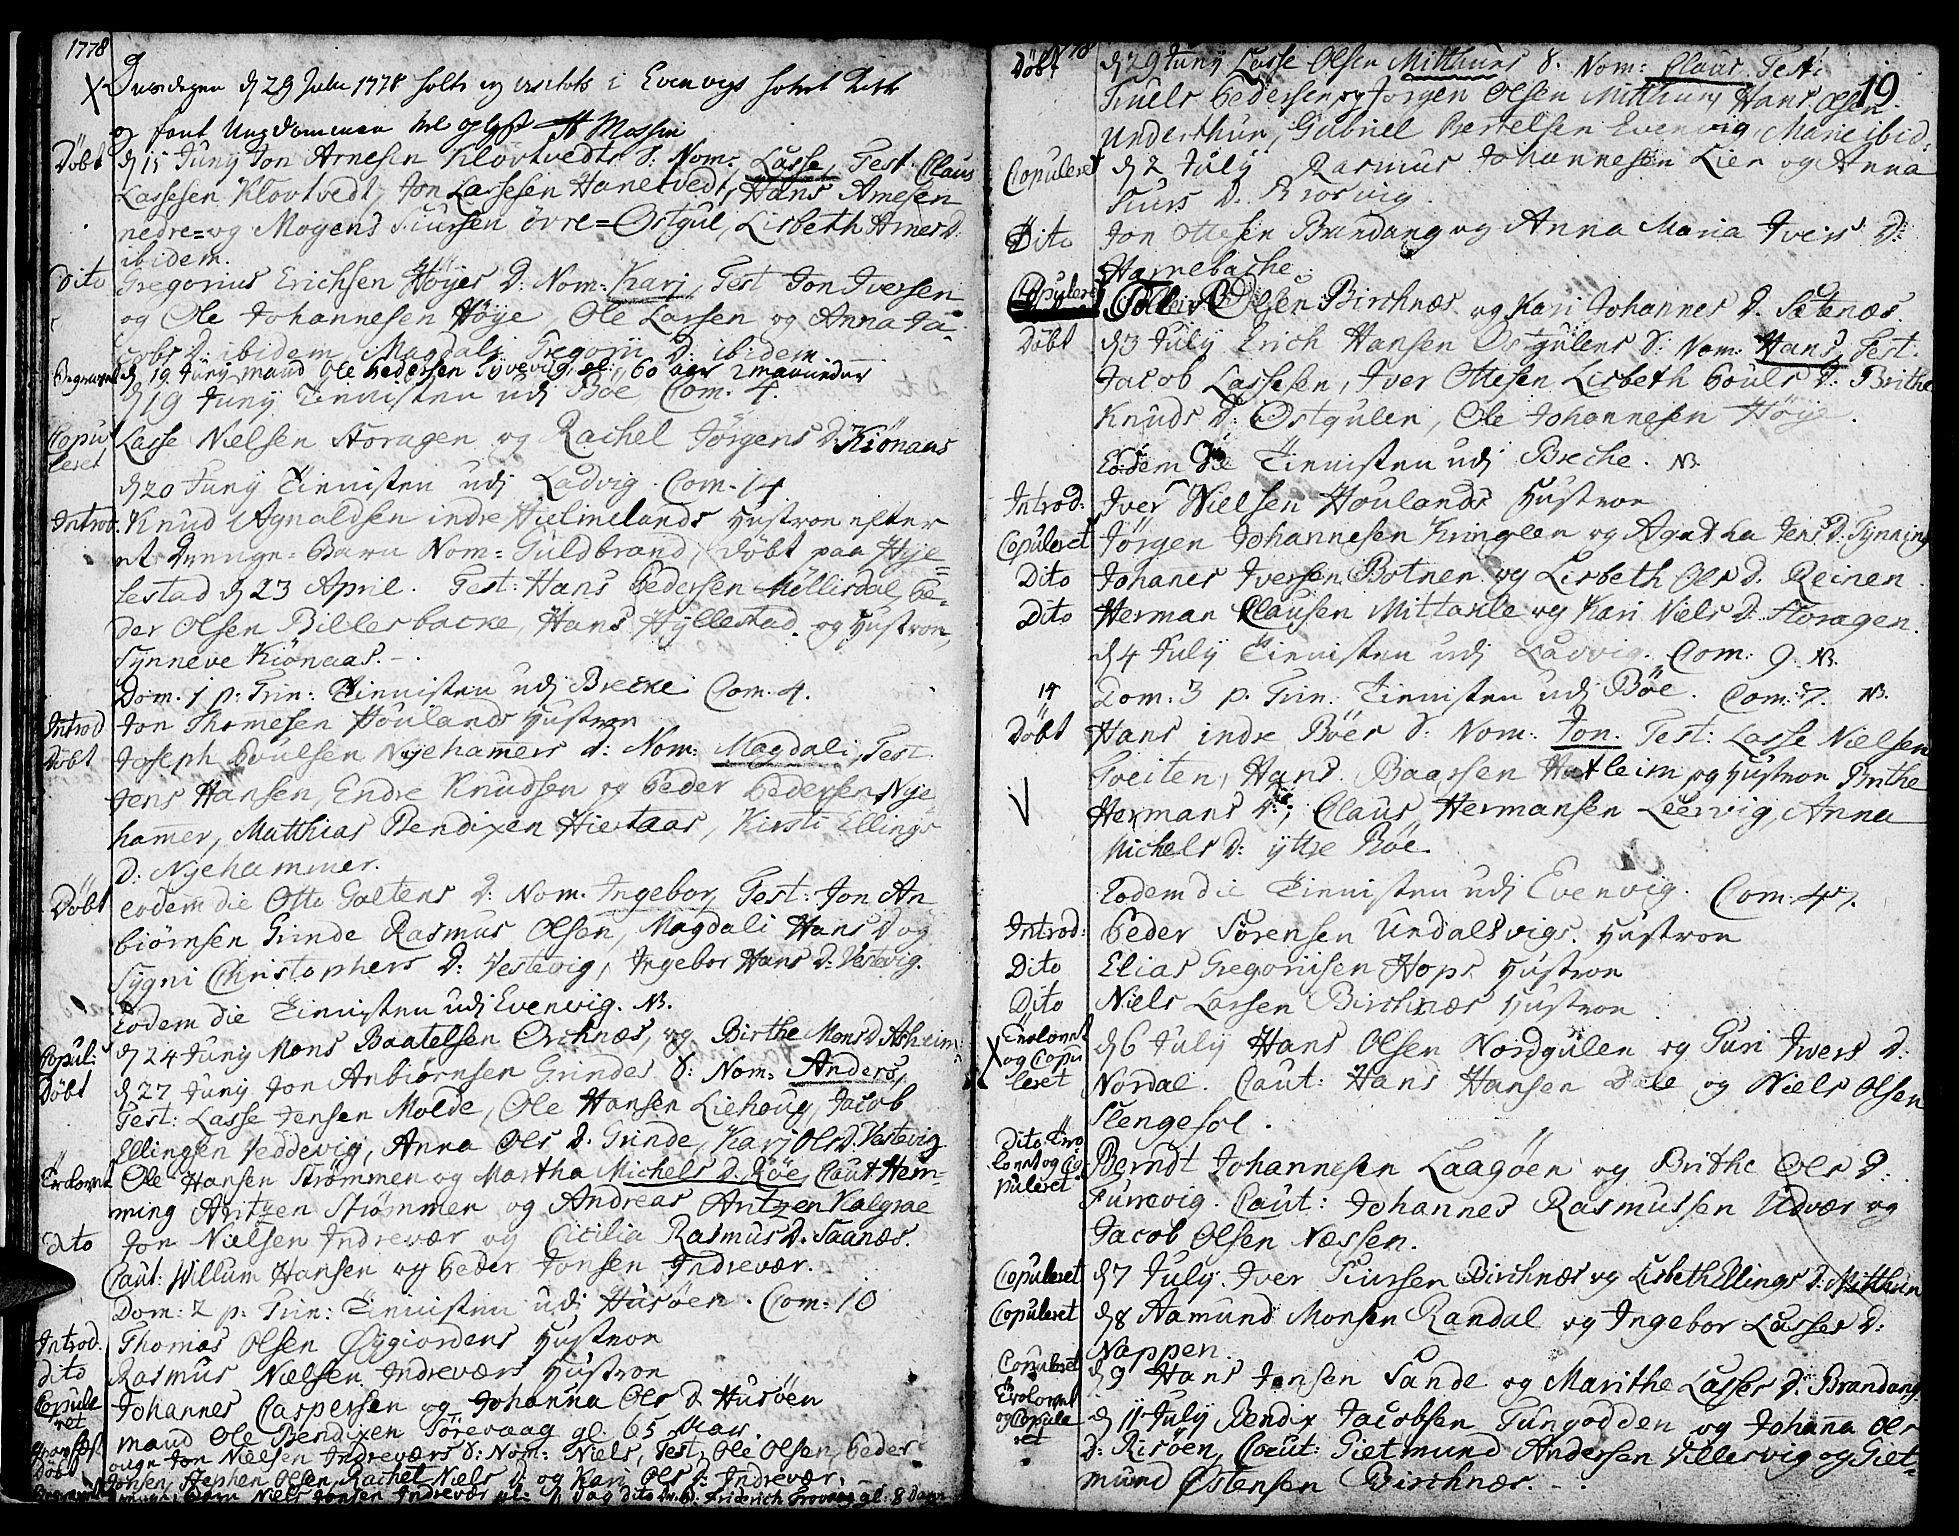 1778
den 29 Julii 1778 holt ieg visitats i Evenvigs hoved Kirke
og fant Ungdommen vel oplyst
Döbt d 15 Junÿ Jon Arnesen Klovtvedts S: Nom: Lasse, Test. Claus
Lassesen Klovtvedt, Jon Lassesen Hanetvedt, Hans Arnesen
nedre= og Mogens Siursen övre=Ostgul, Lisbeth Arnes D:
ibidem.
Dito Gregorius Erichsen Höyes D: Nom: Karj, Test Jon Iversen
og Ole Johannesen Höye, Ole Larsen og Anna Ja-
cobs D: ibidem, Magdali Gregorii D: ibidem.
Begravet d 19 Junÿ mand Ole Pedersen gl: 60 aar 2 maaneder
d 19 Junÿ Tienisten udj Böe Com. 4.
Copuleret Lasse Nielsen Storagen og Rachel Jörgens D: Kiönaas
d 20 Junÿ Tienisten udj Ladvig. Com. 14
Introd. Knud Agnaldsen indre Hielmelands Hustroe efter
et Drenge-Barn Nom: Guldbrand, döbt paa Hÿe-
lestad d 23 April. Test: Hans Pedersen Möllisdal, Pe-
der Olsen Billesbacke, Hans Hÿllestad og Hustroe,
Sÿnneve Kiönaas.
Dom. 1 p: Trin: Tienisten udj Brecke Com. 4.
Introd Jon Thomesen Houlands Hustroe
Döbt Joseph Poulsen Nÿehamers d: Nom: Magdali, Test
Jens Hansen, Endre Knudsen og Peder Pedersen Nÿe
hamer, Matthias Bendixen Hiertaas, Kirsti Ellings
D: Nÿehammer.
Döbt eodem die Otto Galtens D: Nom. Ingebor, Test: Jon An
biörnsen Grinde Rasmus Olsen, Magdali Hans D og
Sÿgni Christophers D: Vestevig, Ingebor Hans D: Vestevig.
Eodem die Tienisten udj Evenvig. NB.
Copul: d 24 Junÿ Mons Baatelsen Orchnæs, og Birthe Mons D Asheim
Döbt d 27 Junÿ Jon Anbiörnsen Grindes S: Nom: Anders,
Test: Lasse Jensen Molde, Ole Hansen Liehoug, Jacob
Ellingsen Veddevig, Anna Ols D: Grinde, Karj Ols D: Vestevig
Trolovet Ole Hansen Strömmen og Martha Michels D. Röe, Caut Hem-
ming Antzen Strömmen og Andreas Antzen Kalgrae
dito Jon Nielsen Indrevær og Cicilia Rasmus D: Saanæs.
Caut: Willum Hansen og Peder Jonsen Indrevær.
Dom: 2 p: Trin: Tienisten udi Husöen. Com: 10
Introd. Thomas Olsen Öygiordens Hustroe
dito Rasmus Nielsen Indreværs Hustroe
Copuleret Johannes Caspersen og Johanna Ols D Husöen
mand Ole Bendixen Törevaag gl. 65 Aar.
Döbt Jon Nielsen Indreværs S: Nom: Niels, Test, Ole Olsen, Peder
Jonsen, Stephen Olsen, Rachel Niels D: og Kari Ols D: Indrevær.
Niels Jonsen Indrevær
19
Döbt d 29 Junÿ Lasse Olsen Mitthuns S. Nom: Claus, Test:
Truels Pedersen og Jörgen Olsen Mitthun, Hans Olsen
Underthun, Gabriel Bertelsen Evenvig, Marie ibid:
Copuleret d 2 Julÿ Rasmus Johannesen Lien og Anna
Siurs D. Brosvig.
Dito Jon Ottesen Brandang og Anna Maria Ivers D:
Harnebache.
Copuleret Olsen Birchnæs og Kari Johannes D. Sætenæs.
Döbt d 3 Julÿ Erich Hansen Ostgulens S: Nom: Hans, Test:
Jacob Lassesen, Iver Ottesen Lisbeth Pouls D: Brithe
Knuds D: Ostgulen, Ole Johannesen Höÿe.
Eodem Die Tienisten udj Breche. NB.
Introd: Iver Nielsen Houlands Hustroe
Copuleret Jörgen Johannesen Kringlen og Agatha Jens D: Tÿnning
Dito Johanes Iversen Botnen og Lisbeth Ols D. Reinen.
Dito Herman Clausen Mittarile og Kari Niels D. Storagen.
d 4 Julÿ Tienisten udj Ladvig. Com: 9. NB.
Dom: 3 p. Trin: Tienisten udj Böe. Com: 7. NB.
Döbt Hans indre Böes S: Nom: Jon. Test: Lasse Nielsen
Tveiten, Hans Baarsen Hatleim og Hustroe Brithe
Hermans D:, Claus Hermansen Leervig, Anna
Michels D: ÿttre Böe.
Eodem die Tienisten udj Evenvig. Com: 47.
Introd: Peder Sörensen Undalsvigs Hustroe
Dito Elias Gregoriisen Hops Hustroe
Dito Niels Larsen Birchnæs Hustroe
Trolovet
og Copu
leret d 6 Julÿ Hans Olsen Nordgulen og Guri Ivers D:
Nordal. Caut: Hans Hansen Dale og Niels Olsen
Slengesol.
Dito Tro
lovet og Co
puleret Berndt Johannesen Laagöen og Brithe Ols D:
Furrevig. Caut: Johannes Rasmussen Udvær og
Jacob Olsen Næssen.
Copuleret d 7 Julÿ. Iver Siursen Birchnæs og Lisbeth Ellings D: Mitthun
Copuleret d 8 Aamund Monsen Randal og Ingebor Lasses D:
Nappen.
Copuleret d 9 Hans Jensen Sande og Marithe Lasses D. Brandang
Trolovet
og Copule
ret d 11 Julÿ Bendix Jacobsen Tungodden og Johanna Ols
D: Risöen, Caut: Gietmund Andersen Villesvig og Giet-
mund Östensen Birchnæs.